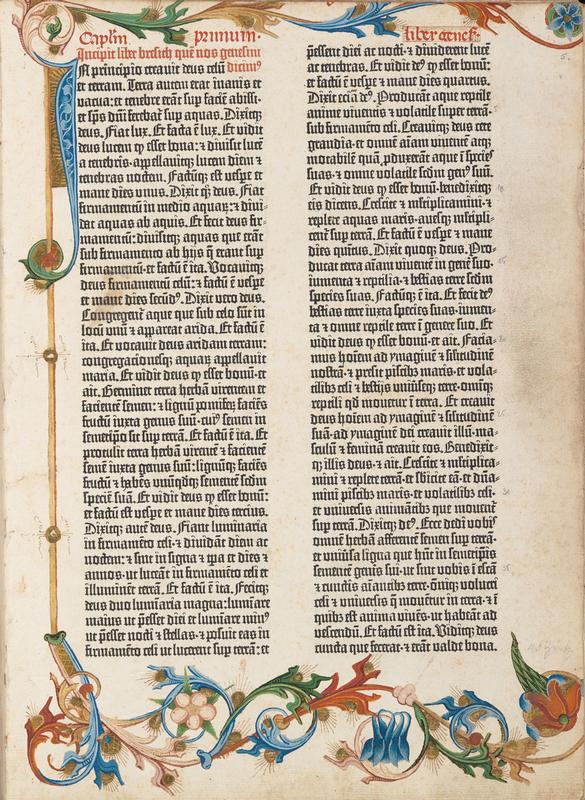 Caplm primum.
liber genesis
Incipit liber bresich quē nos genesim
dicimꝰ
In principio creavit deus celū
et terram. Terra autem erat inanis et
vacua: et tenebre erāt sup faciē abissi:
et spūs dn̄i ferebat̄ sup aquas. Dixitq;
deus. Fiat lux. Et facta ē lux. Et vidit
deus lucem ꝙ esset bona: ⁊ divisit lucē
a tenebris·appellavitq; lucem diem ⁊
tenebras noctem. Factūq; est vespe et
mane dies unus. Dixit q̄; deus. Fiat
firmamentū in medio aquaꝝ: ⁊ divi-
dat aquas ab aquis. Et fecit deus fir-
mamentū: divisitq; aquas que erāt
sub firmamento ab hijs q̄ erant sup
firmamentū: et factū ē ita. Vocavitq;
deus firmamentū celū: ⁊ factū ē vespe
et mane dies secūdꝰ. Dixit vero deus.
Congregent̄ aque que sub celo sūt in
locū unū ⁊ appareat arida. Et factū ē
ita. Et vocavit deus aridam terram:
congregacionesq; aquaꝝ appellavit
maria. Et vidit deus ꝙ esset bonū·et
ait. Germinet terra herbā virentem et
facientē semen: ⁊ lignū pomifeꝝ faciēs
fructū iuxta genus suū·cuiꝰ semen in
semetip̄o sit sup terrā. Et factū ē ita. Et
protulit terra herbā virentē ⁊ facientē
semē iuxta genus suū: lignūq; faciēs
fructū ⁊ habēs unūqdq; sementē scdm
speciē suā. Et vidit deus ꝙ esset bonū:
et factū est vespe et mane dies tercius.
Dixitq; autē deus. Fiant luminaria
in firmamēto celi·⁊ dividāt diem ac
noctem: ⁊ sint in signa ⁊ tp̄a et dies ⁊
annos: ut luceāt in firmamēto celi et
illuminēt terrā. Et factū ē ita. Fecitq;
deus duo lumīaria magna: lumīare
maius ut p̄esset diei et lumīare minꝰ
ut p̄esset nocti ⁊ stellas·⁊ posuit eas in
firmamēto celi ut lucerent sup terrā: et
p̄essent diei ac nocti·⁊ dividerent lucē
ac tenebras. Et vidit deꝰ ꝙ esset bonū:
et factū ē vespe ⁊ mane dies quartus.
Dixit eciā deꝰ. Producāt aque reptile
anime viventis ⁊ volatile super terrā·
sub firmamēto celi. Creavitq; deus cete
grandia·et omnē aīam viventē atq;
motabilē quā p̄duxerāt aque ī species
suas·⁊ omne volatile scdm genꝰ suū.
Et vidit deus ꝙ esset bonū·benedixitq;
eis dicens. Crescite ⁊ mltiplicamini·⁊
replete aquas maris·avesq; mltipli-
cent̄ sup terrā. Et factū ē vespe ⁊ mane
dies quintus. Dixit quoq; deus. Pro-
ducat terra aīam viventē in genē suo·
iumenta ⁊ reptilia·⁊ bestias terre scdm
species suas. Factūq; ē ita. Et fecit deꝰ
bestias terre iuxta species suas·iumen-
ta ⁊ omne reptile terre ī genere suo. Et
vidit deus ꝙ esset bonū·et ait. Facia-
mus hoīem ad ymaginē ⁊ silitudinē
nostrā·⁊ presit piscibꝫ maris·et vola-
tilibꝫ celi ⁊ bestijs univseq; terre·omīq;
reptili qd movetur ī terra. Et creavit
deus hoīem ad ymaginē ⁊ silitudinē
suā·ad ymaginē dei creavit illū·ma-
sculū ⁊ feminā creavit eos. Benedixit-
q; illis deus·⁊ ait. Crescite ⁊ mltiplica-
mini ⁊ replete terrā·et sbicite eā·⁊ dn̄a-
mini piscibꝫ maris·et volatilibꝫ celi·
et universis animātibꝫ que movent̄
sup terrā. Dixitq; deꝰ. Ecce dedi vobis
omnē herbā afferentē semen sup terrā·
et univsa ligna que hn̄t in semetip̄is
sementē genēis sui·ut sint vobis ī escā
⁊ cunctis aīantibꝫ terre·oīniq; volucri
celi ⁊ universis q̄ movētur in terra·⁊ ī
quibꝫ est anima vivēs·ut habeāt ad
vescendū. Et factū est ita. Viditq; deus
cuncta que fecerat·⁊ erāt valde bona.